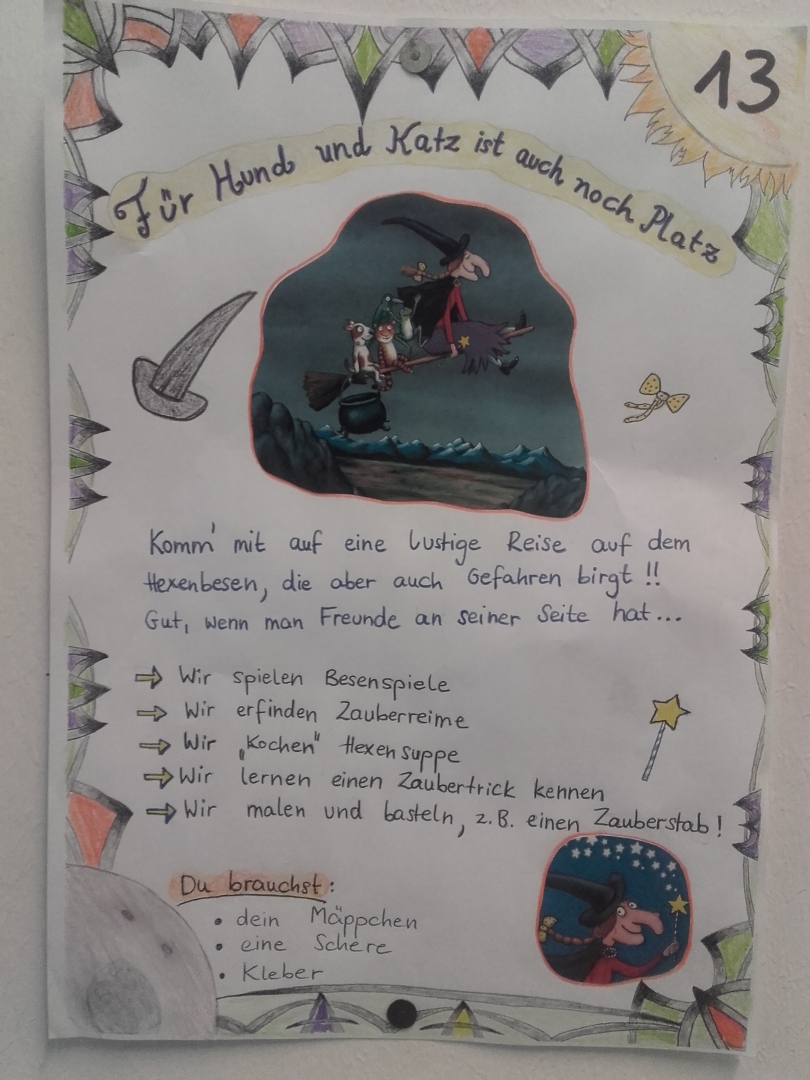 13
Für Hund und Katz ist auch noch Platz
Komm' mit auf eine lustige Reise auf dem
Hexenbesen, die aber auch Gefahren birgt !!
Gut, wenn man Freunde an seiner Seite hat...
⇒ Wir spielen Besenspiele
⇒ Wir erfinden Zauberreime
⇒ Wir „Kochen" Hexensuppe
⇒ Wir lernen einen Zaubertrick kennen
⇒ Wir malen und basteln, z.B. einen Zauberstab!
Du brauchst:
• dein Mäppchen
• eine Schere
• Kleber